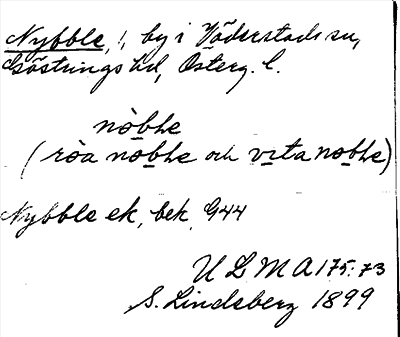 Nybble, !, by i Väderstads sn,
Göstrings hd, Österg. l.
nòbłe
(ròa nòbłe och vita nobłe)
Nybble ek, bek, G44
ULMA 175:73
S. Lindeberg 1899